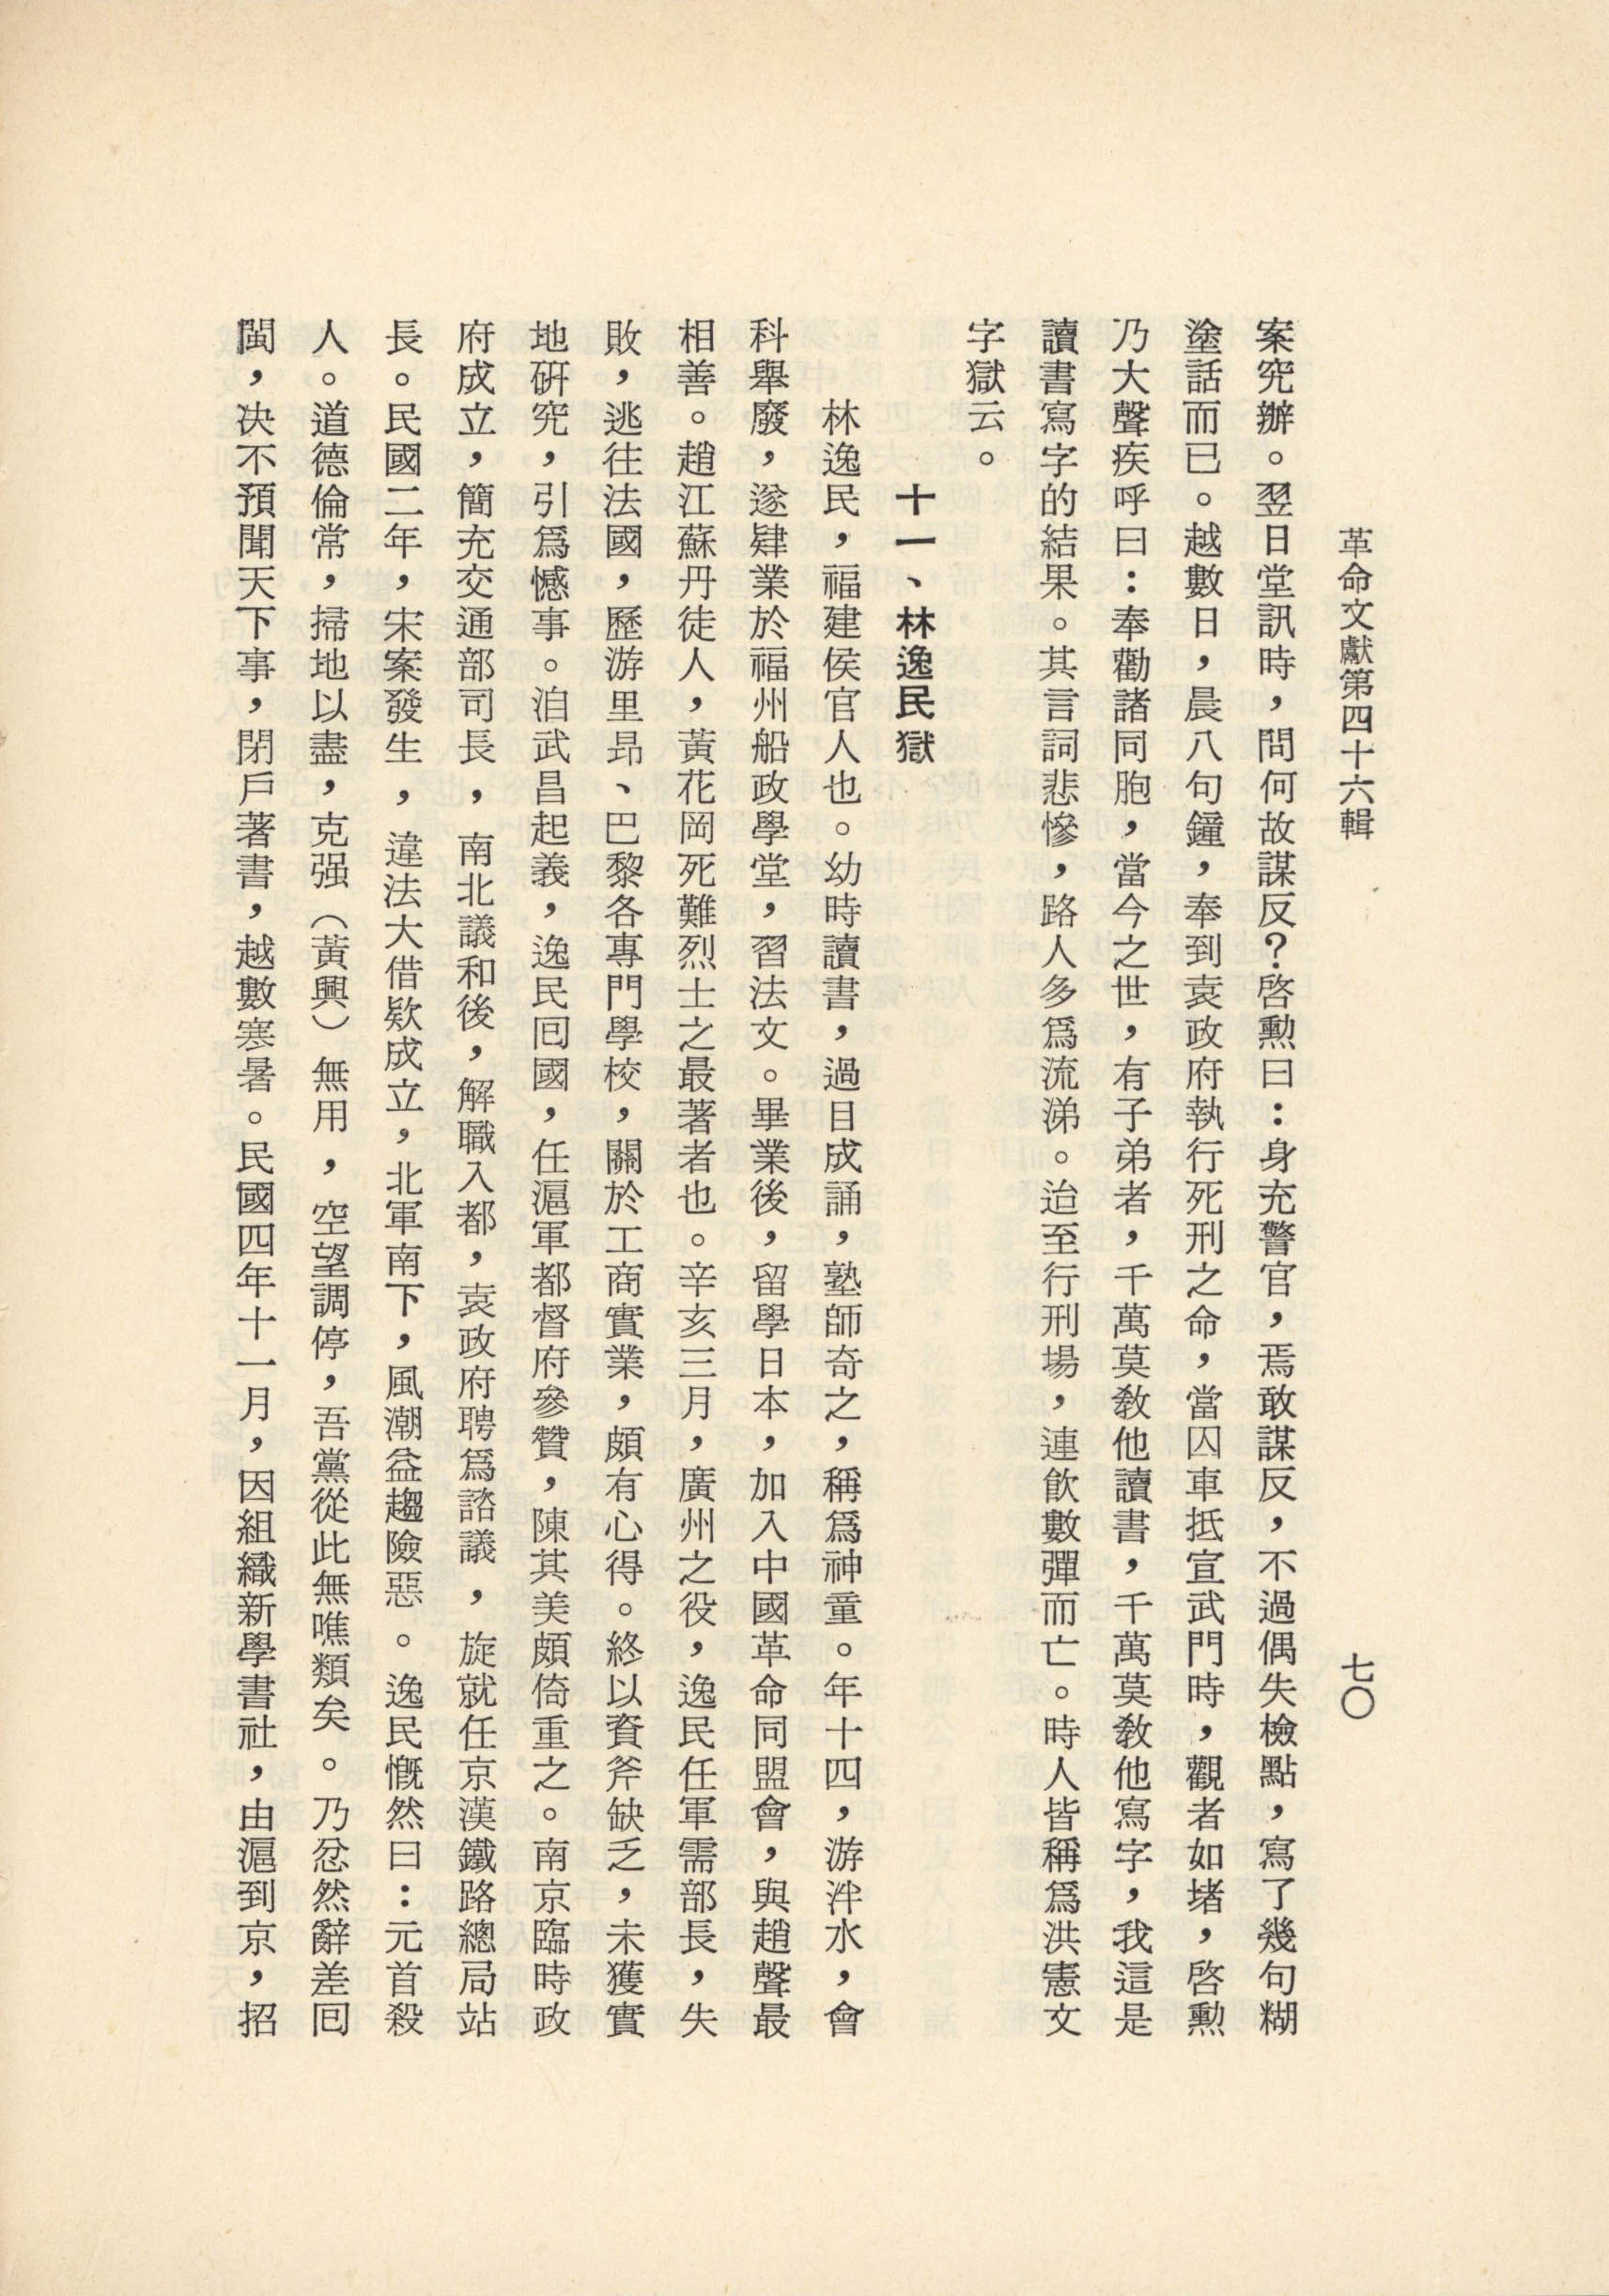 革命文獻第四十六輯
七〇
案究辦。翌日堂訊時，問何故謀反？啓勲曰：身充警官，焉敢謀反，不過偶失檢點，寫了幾句糊
塗話而已。越數日，晨八句鐘，奉到袁政府執行死刑之命，當囚車抵宣武門時，觀者如堵，啓勲
乃大聲疾呼曰：奉勸諸同胞，當今之世，有子弟者，千萬莫敎他讀書，千萬莫敎他寫字，我這是
讀書寫字的結果。其言詞悲慘，路人多爲流涕。迨至行刑場，連飮數彈而亡。時人皆稱爲洪憲文
字獄云。
十一、林逸民獄
林逸民，福建侯官人也。幼時讀書，過目成誦，塾師奇之，稱爲神童。年十四，游泮水，會
科舉廢，遂肄業於福州船政學堂，習法文。畢業後，留學日本，加入中國革命同盟會，與趙聲最
相善。趙江蘇丹徒人，黃花岡死難烈士之最著者也。辛亥三月，廣州之役，逸民任軍需部長，失
敗，逃往法國，歷游里昂、巴黎各專門學校，關於工商實業，頗有心得。終以資斧缺乏，未獲實
地硏究，引爲憾事。洎武昌起義，逸民囘國，任滬軍都督府參贊，陳其美頗倚重之。南京臨時政
府成立，簡充交通部司長，南北議和後，解職入都，袁政府聘爲諮議，旋就任京漢鐵路總局站
長。民國二年，宋案發生，違法大借欵成立，北軍南下，風潮益趨險惡。逸民慨然曰：元首殺
人。道德倫常，掃地以盡，克强（黃興）無用，空望調停，吾黨從此無噍類矣。乃忿然辭差囘
閩，决不預聞天下事，閉戶著書，越數寒暑。民國四年十一月，因組織新學書社，由滬到京，招